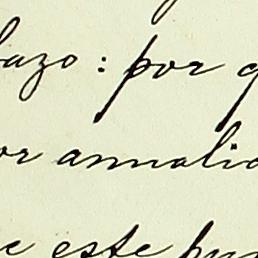 bazo: por q
or annalid
e este pun